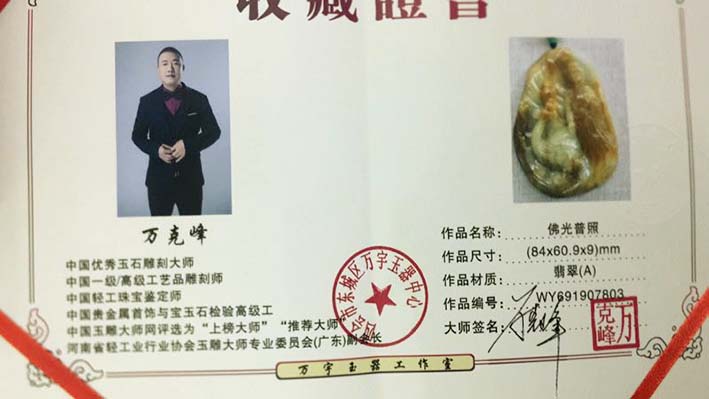 收藏證書
万克峰
中国优秀玉石雕刻大师
中国一级/高级工艺品雕刻师
中国轻工珠宝鉴定师
中国贵金属首饰与宝玉石检验高级工
中国玉雕大师网评选为“上榜大师”“推荐大师”
河南省轻工业行业协会玉雕大师专业委员会(广东)副会长
作品名称: 佛光普照
作品尺寸: (84x60.9x9)mm
作品材质: 翡翠(A)
作品编号: WY691907803
大师签名:
万克峰
市东城区万宇玉器中心
万宇玉器工作室